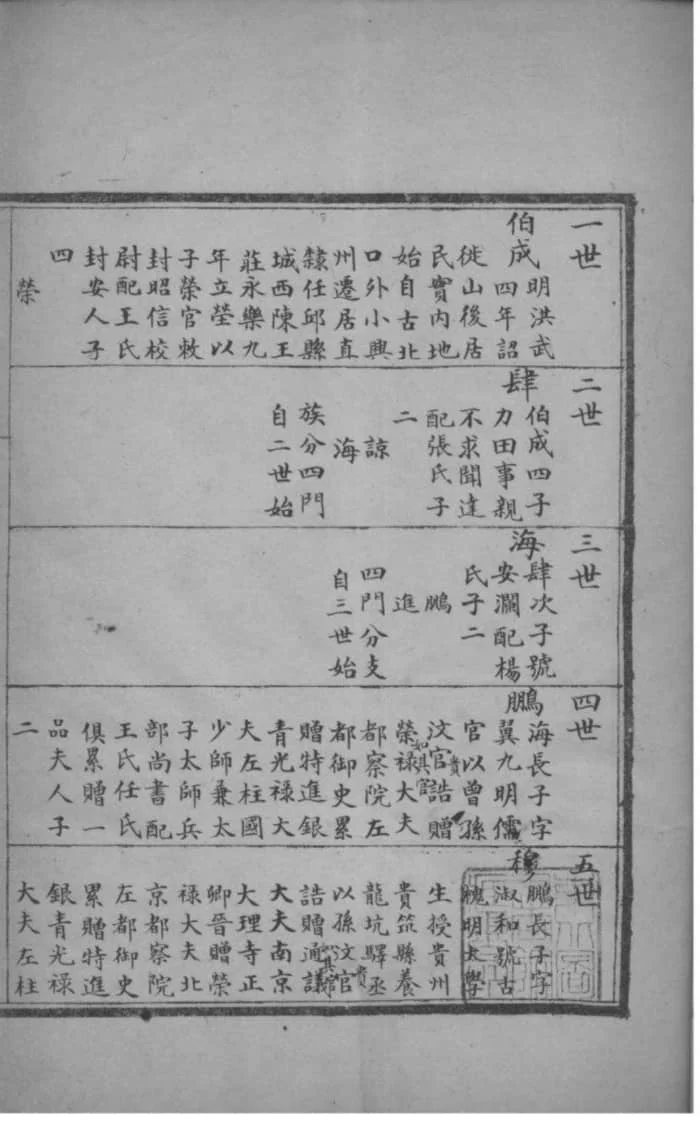 一世
伯成
明洪武
四年詔
徙山後居
民實內地
始自古北
口外小興
州遷居直
隸任邱縣
城西陳王
莊永樂九
年立塋以
子榮官敕
封昭信校
尉配王氏
封安人子
四
榮
二世
肆
伯成四子
力田事親
不求聞達
配張氏子
二
諒
海
族分四門
自二世始
三世
海
肆次子號
安瀾配楊
氏子二
鵬
進
四門分支
自三世始
四世
鵬
海長子字
翼九明儒
官以曾孫
貴
汶官誥贈
如其官
榮祿大夫
都察院左
都御史累
贈特進銀
青光祿大
夫左柱國
少師兼太
子太師兵
部尚書配
王氏任氏
俱累贈一
品夫人子
二
五世
穆
鵬長子字
淑和號古
槐明太學
生授貴州
貴筑縣養
龍坑驛丞
貴
以孫汶官
誥贈通議
大夫南京
大理寺正
卿晉贈榮
祿大夫北
京都察院
左都御史
累贈特進
銀青光祿
大夫左柱